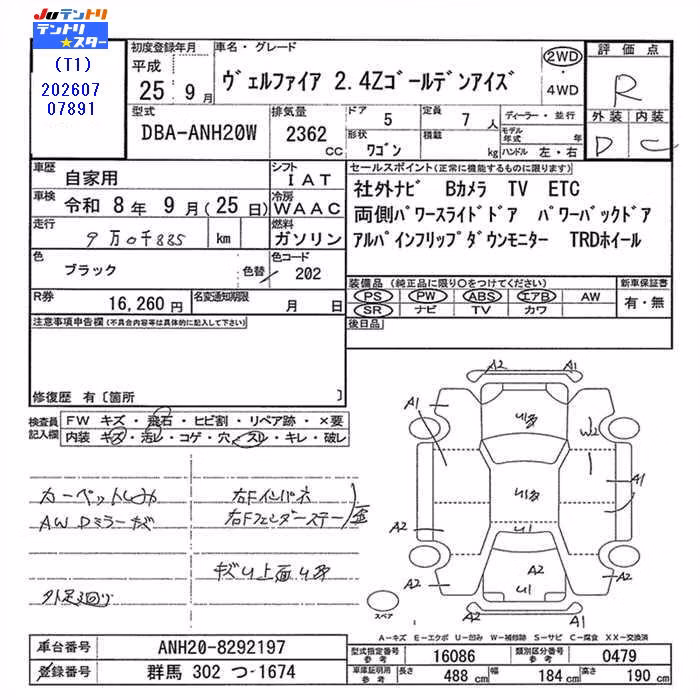 JUテントリ
テントリ★スター
(T1)
202607
07891
初度登録年月
平成
25年9月
車名・グレード
ヴェルファイア 2.4Zゴールデンアイズ
2WD
・
4WD
評価点
R
外装 内装
D C
型式
DBA-ANH20W
排気量
2362 CC
ドア 5
形状 ワゴン
定員 7人
積載 kg
ディーラー・並行
モデル年式 年
ハンドル 左・右
車歴 自家用
シフト IAT
車検 令和 8年 9月(25日)
冷房 WAAC
走行 9万0千885 km
燃料 ガソリン
色 ブラック 色替
色コード 202
R券 16,260円
名変通知期限 月 日
セールスポイント(正常に機能するものに限ります)
社外ナビ Bカメラ TV ETC
両側パワースライドドア パワーバックドア
アルパインフリップダウンモニター TRDホイール
装備品(純正品に限り○をつけてください)
PS PW ABS エアB AW
SR ナビ TV カワ
新車保証書
有・無
後日品
注意事項申告欄(不具合内容等は具体的に記入して下さい)
修復歴 有〔箇所 〕
検査員記入欄
FW キズ・飛石・ヒビ割・リペア跡・×要
内装 キズ・汚レ・コゲ・穴・スレ・キレ・破レ
カーペットしみ
AW Dミラーキズ
外足廻り
右Fインパネ
右Fフェンダーステー
歪
キズU上面U多
A2 A1
A1 U多 W2
U多 A1
A2 U1
A2 A2 U1 A2
A2 A1
スペア
A−キズ E−エクボ U−凹み W−補修跡 S−サビ C−腐食 XX−交換済
車台番号 ANH20-8292197
登録番号 群馬 302 つ-1674
型式指定番号 参考 16086
類別区分番号 参考 0479
車庫証明用 参考 長さ 488cm 幅 184cm 高さ 190cm